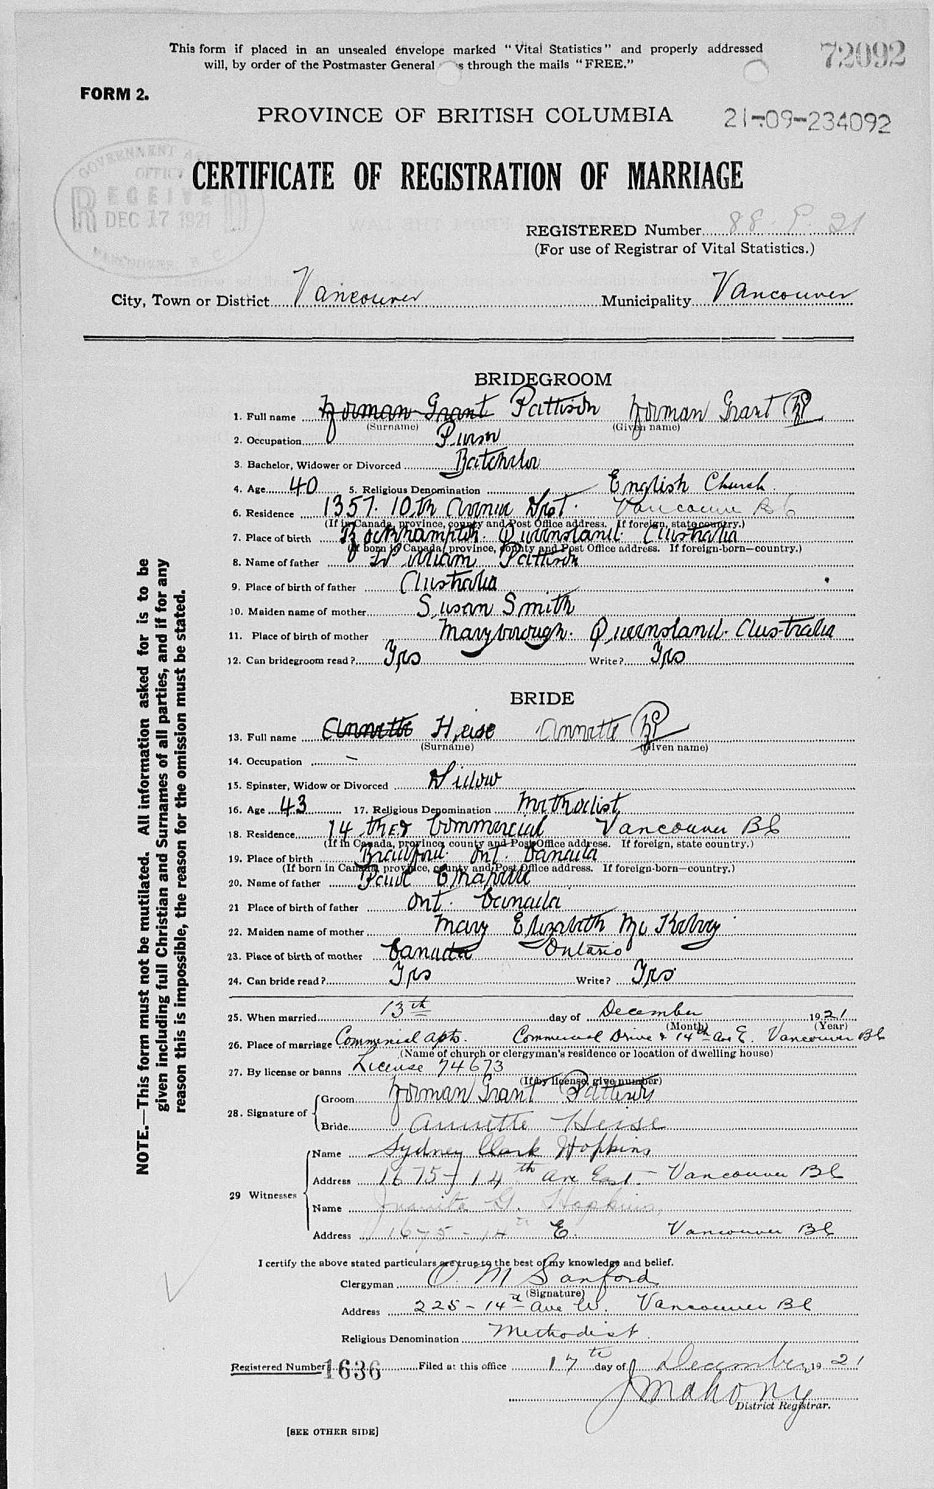 This form if placed in an unsealed envelope marked "Vital Statistics" and properly addressed
will, by order of the Postmaster General s through the mails "FREE."
72092
FORM 2.
PROVINCE OF BRITISH COLUMBIA
21-09-234092
GOVERNMENT
OFFICE
RECEIVED
DEC 17 1921
VANCOUVER B. C.
CERTIFICATE OF REGISTRATION OF MARRIAGE
REGISTERED Number 88 21
(For use of Registrar of Vital Statistics.)
City, Town or District Vancouver Municipality Vancouver
NOTE.—This form must not be mutilated. All information asked for is to be
given including full Christian and Surnames of all parties, and if for any
reason this is impossible, the reason for the omission must be stated.
BRIDEGROOM
1. Full name Norman Grant Pattison Norman Grant
(Surname) (Given name)
2. Occupation
3. Bachelor, Widower or Divorced Batchelor
4. Age 40 5. Religious Denomination English Church
6. Residence 1357. 10th Avenue West. Vancouver BC
(If in Canada, province, county and Post Office address. If foreign, state country.)
7. Place of birth Rockhampton. Queensland. Australia
(If born in Canada, province, county and Post Office address. If foreign-born—country.)
8. Name of father William Pattison
9. Place of birth of father Australia
10. Maiden name of mother Susan Smith
11. Place of birth of mother Maryborough. Queensland. Australia
12. Can bridegroom read? Yes Write? Yes
BRIDE
13. Full name Annette Heise Annette
(Surname) (Given name)
14. Occupation –
15. Spinster, Widow or Divorced Widow
16. Age 43 17. Religious Denomination Methodist
18. Residence 14 Commercial Vancouver BC
(If in Canada, province, county and Post Office address. If foreign, state country.)
19. Place of birth Ont. Canada
(If born in Canada, province, county and Post Office address. If foreign-born-country.)
20. Name of father
21 Place of birth of father Ont. Canada
22. Maiden name of mother Mary Elizabeth
23. Place of birth of mother Canada Ontario
24. Can bride read? Yes Write? Yes
25. When married 13th day of December 1921
(Month) (Year)
26. Place of marriage Commercial apts. Commercial Drive & 14th Ave E. Vancouver BC
(Name of church or clergyman's residence or location of dwelling house)
27. By license or banns License 74673
(If by license, give number)
28. Signature of Groom Norman Grant Pattison
Bride Annette Heise
29 Witnesses Name Sydney Clark Hopkins
Address 1675 - 14th Ave East - Vancouver BC
Name Juanita G. Hopkins
Address 1675 - 14th E. Vancouver BC
I certify the above stated particulars are true to the best of my knowledge and belief.
Clergyman O M Sanford
(Signature)
Address 225 - 14th Ave W. Vancouver BC
Religious Denomination Methodist
Registered Number 1636 Filed at this office 17th day of December, 1921
J Mahony
District Registrar.
[SEE OTHER SIDE]